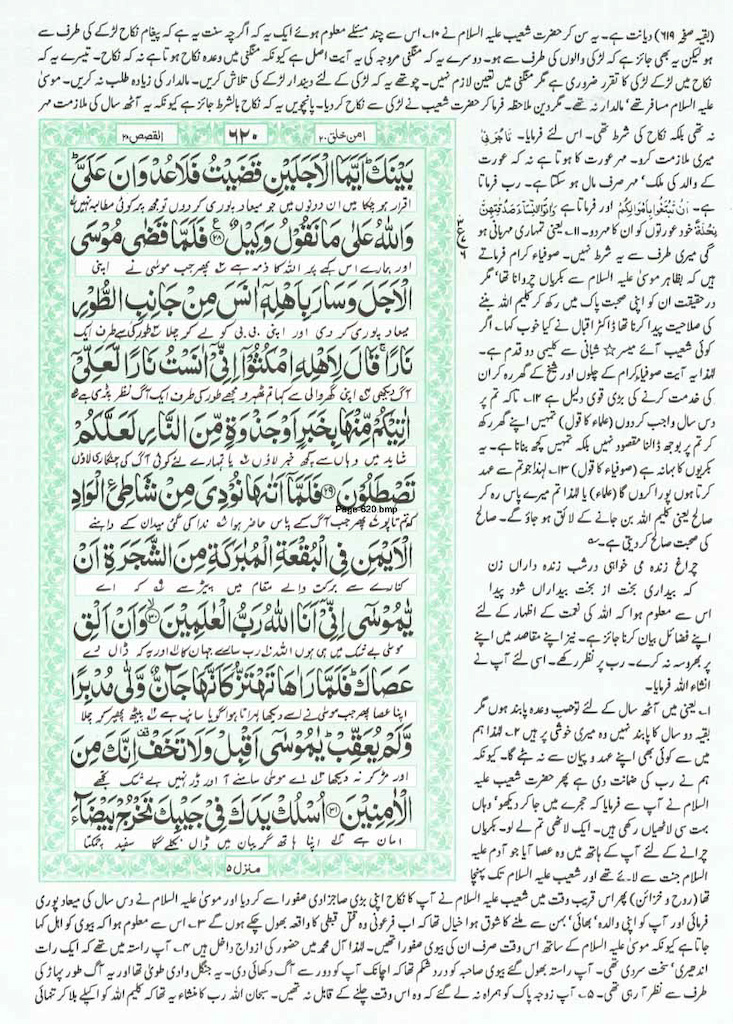 (بقیہ صفحہ ۶۱۹) دیانت ہے۔ یہ سن کر حضرت شعیب علیہ السلام نے ۱۰۔ اس سے چند مسئلے معلوم ہوئے ایک یہ کہ اگرچہ سنت یہ ہے کہ پیغام نکاح لڑکے کی طرف سے
ہو لیکن یہ بھی جائز ہے کہ لڑکی والوں کی طرف سے ہو۔ دوسرے یہ کہ منگنی مروجہ کی یہ آیت اصل ہے کیونکہ منگنی میں وعدہ نکاح ہوتا ہے نہ کہ نکاح۔ تیسرے یہ کہ
نکاح میں لڑکے لڑکی کا تقرر ضروری ہے مگر منگنی میں تعین لازم نہیں۔ چوتھے یہ کہ لڑکی کے لئے دیندار لڑکے کی تلاش کریں۔ مالدار کی زیادہ طلب نہ کریں۔ موسیٰ
علیہ السلام مسافر تھے، مالدار نہ تھے۔ مگر دین ملاحظہ فرما کر حضرت شعیب نے لڑکی سے نکاح کر دیا۔ پانچویں یہ کہ نکاح بالشرط جائز ہے کیونکہ یہ آٹھ سال کی ملازمت مہر
نہ تھی بلکہ نکاح کی شرط تھی۔ اس لئے فرمایا۔ تَاْجُرَنِیْ
میری ملازمت کرو۔ مہر عورت کا ہوتا ہے نہ کہ عورت
کے والد کی ملک، مہر صرف مال ہو سکتا ہے۔ رب فرماتا
ہے۔ اَنْ تَبْتَغُوْا بِاَمْوَالِكُمْ اور فرماتا ہے وَاٰتُوا النِّسَآءَ صَدُقٰتِهِنَّ
نِحْلَةً خود عورتوں کو ان کا مہر دو۔ ۱۱۔ یعنی تمہاری مہربانی ہو
گی میری طرف سے یہ شرط نہیں۔ صوفیاء کرام فرماتے
ہیں کہ بظاہر موسیٰ علیہ السلام سے بکریاں چروانا تھا، مگر
درحقیقت ان کو اپنی صحبت پاک میں رکھ کر کلیم اللہ بننے
کی صلاحیت پیدا کرنا تھا ڈاکٹر اقبال نے کیا خوب کہا۔ اگر
کوئی شعیب آئے میسر ☆ شبانی سے کلیمی دو قدم ہے۔
لہٰذا یہ آیت صوفیاء کرام کے چلوں اور شیخ کے گھر رہ کر ان
کی خدمت کرنے کی بڑی قوی دلیل ہے ۱۲۔ تاکہ تم پر
دس سال واجب کر دوں (علماء کا قول) تمہیں اپنے گھر رکھ
کر تم پر بوجھ ڈالنا مقصود نہیں بلکہ تمہیں کچھ بنانا ہے۔ یہ
بکریوں کا بہانہ ہے (صوفیاء کا قول) ۱۳۔ لہٰذا جو تم سے عہد
کرتا ہوں پورا کروں گا (علماء) یا لہٰذا تم میرے پاس رہ کر
صالح یعنی کلیم اللہ بن جانے کے لائق ہو جاؤ گے۔ صالح
کی صحبت صالح کر دیتی ہے۔
چراغ زندہ می خواہی در شب زندہ داراں زن
کہ بیداری بخت از بخت بیداراں شود پیدا
اس سے معلوم ہوا کہ اللہ کی نعمت کے اظہار کے لئے
اپنے فضائل بیان کرنا جائز ہے۔ نیز اپنے مقاصد میں اپنے
پر بھروسہ نہ کرے۔ رب پر نظر رکھے۔ اسی لئے آپ نے
انشاء اللہ فرمایا۔
۱۔ یعنی میں آٹھ سال کے لئے تو حسب وعدہ پابند ہوں مگر
بقیہ دو سال کا پابند نہیں وہ میری خوشی پر ہیں ۲۔ لہٰذا ہم
میں سے کوئی بھی اپنے عہد و پیمان سے نہ ہٹے گا۔ کیونکہ
ہم نے رب کی ضمانت دی ہے پھر حضرت شعیب علیہ
السلام نے آپ سے فرمایا کہ حجرے میں جا کر دیکھو، وہاں
بہت سی لاٹھیاں رکھی ہیں۔ ایک لاٹھی تم لے لو۔ بکریاں
چرانے کے لئے آپ کے ہاتھ میں وہ عصا آیا جو آدم علیہ
السلام جنت سے لائے تھے اور شعیب علیہ السلام تک پہنچا
القصص ۲۸
۶۲۰
امن خلق ۲۰
بَيْنَكَ ؕ اَيَّمَا الْاَجَلَيْنِ قَضَيْتُ فَلَا عُدْوَانَ عَلَیَّ ؕ
اقرار ہو چکا میں ان دونوں میں جو میعاد پوری کر دوں تو مجھ پر کوئی مطالبہ نہیں
وَاللّٰهُ عَلٰى مَا نَقُوْلُ وَكِيْلٌ ۲۸ فَلَمَّا قَضٰى مُوْسَى
اور ہمارے اس کہے پر اللہ کا ذمہ ہے پھر جب موسیٰ نے اپنی
الْاَجَلَ وَسَارَ بِاَهْلِهٖۤ اٰنَسَ مِنْ جَانِبِ الطُّوْرِ
میعاد پوری کر دی اور اپنی بی بی کو لے کر چلا طور کی طرف ایک
نَارًا ۚ قَالَ لِاَهْلِهِ امْكُثُوْۤا اِنِّیْۤ اٰنَسْتُ نَارًا لَّعَلِّیْۤ
آگ دیکھی اپنی گھر والی سے کہا تم ٹھہرو مجھے طور کی طرف ایک آگ نظر پڑی ہے
اٰتِيْكُمْ مِّنْهَا بِخَبَرٍ اَوْ جَذْوَةٍ مِّنَ النَّارِ لَعَلَّكُمْ
شاید میں وہاں سے کچھ خبر لاؤں یا تمہارے لئے کوئی آگ کی چنگاری لاؤں
تَصْطَلُوْنَ ۲۹ فَلَمَّاۤ اَتٰىهَا نُوْدِیَ مِنْ شَاطِئِ الْوَادِ
کہ تم تاپو پھر جب آگ کے پاس حاضر ہوا ندا کی گئی میدان کے داہنے
Page-620.bmp
الْاَيْمَنِ فِی الْبُقْعَةِ الْمُبٰرَكَةِ مِنَ الشَّجَرَةِ اَنْ
کنارے سے برکت والے مقام میں پیڑ سے کہ اے
يّٰمُوْسٰۤى اِنِّیْۤ اَنَا اللّٰهُ رَبُّ الْعٰلَمِيْنَ ۳۰ وَاَنْ اَلْقِ
موسیٰ بے شک میں ہی ہوں اللہ رب سارے جہان کا اور یہ کہ ڈال دے
عَصَاكَ ؕ فَلَمَّا رَاٰهَا تَهْتَزُّ كَاَنَّهَا جَآنٌّ وَّلّٰى مُدْبِرًا
اپنا عصا پھر جب موسیٰ نے اسے دیکھا لہراتا ہوا گویا سانپ ہے پیٹھ پھیر کر چلا
وَّلَمْ يُعَقِّبْ ؕ يٰمُوْسٰۤى اَقْبِلْ وَلَا تَخَفْ ۫ اِنَّكَ مِنَ
اور مڑ کر نہ دیکھا اے موسیٰ سامنے آ اور ڈر نہیں بے شک تجھے
الْاٰمِنِيْنَ ۳۱ اُسْلُكْ يَدَكَ فِیْ جَيْبِكَ تَخْرُجْ بَيْضَآءَ
امان ہے اپنا ہاتھ گریبان میں ڈال نکلے گا سفید چمکتا
منزل ۵
تھا (روح و خزائن) پھر اس قریب وقت میں شعیب علیہ السلام نے آپ کا نکاح اپنی بڑی صاجزادی صفورا سے کر دیا اور موسیٰ علیہ السلام نے دس سال کی میعاد پوری
فرمائی اور آپ کو اپنی والدہ، بھائی، بہن سے ملنے کا شوق ہوا خیال تھا کہ اب فرعونی وہ قتل قبطی کا واقعہ بھول چکے ہوں گے ۳۔ اس سے معلوم ہوا کہ بیوی کو اہل کہا
جاتا ہے کیونکہ موسیٰ علیہ السلام کے ساتھ اس وقت صرف ان کی بیوی صفورا تھیں۔ لہٰذا آل محمد میں حضور کی ازواج داخل ہیں ۴۔ آپ راستہ میں تھے کہ ایک رات
اندھیری، سخت سردی تھی۔ آپ راستہ بھول گئے بیوی صاحبہ کو درد شکم تھا کہ اچانک آپ کو دور سے آگ دکھائی دی۔ یہ جنگل وادی طویٰ تھا اور یہ آگ طور پہاڑ کی
طرف سے نظر آ رہی تھی۔ ۵۔ آپ زوجہ پاک کو ہمراہ نہ لے گئے کہ وہ اس وقت چلنے کے قابل نہ تھیں۔ سبحان اللہ رب کا منشاء یہ تھا کہ کلیم اللہ کو اکیلے بلا کر تنہائی